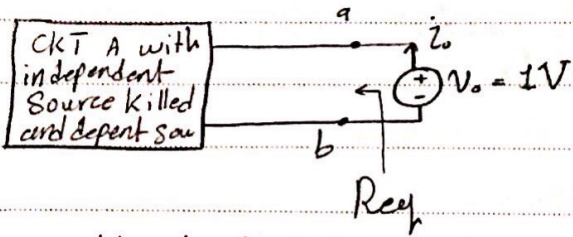 a
CKT A with
independent
Source killed
and depent sou
i₀
+
-
V₀ = 1V
b
Req